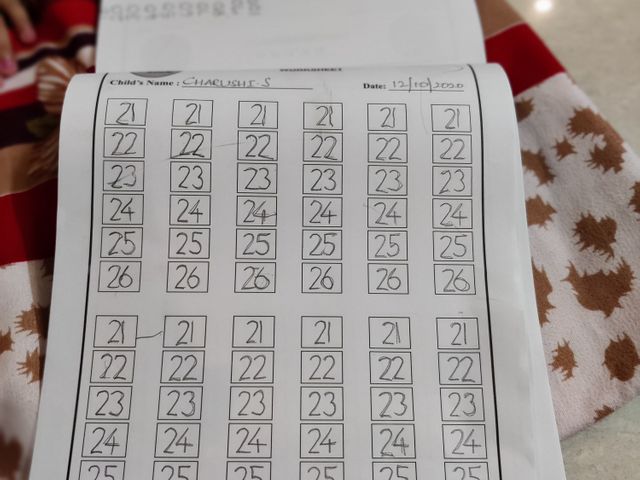 WORKSHEET
Child's Name : CHARUSHI-S Date: 12/10/2020
21 21 21 21 21 21
22 22 22 22 22 22
23 23 23 23 23 23
24 24 24 24 24 24
25 25 25 25 25 25
26 26 26 26 26 26
21 21 21 21 21 21
22 22 22 22 22 22
23 23 23 23 23 23
24 24 24 24 24 24
25 25 25 25 25 25